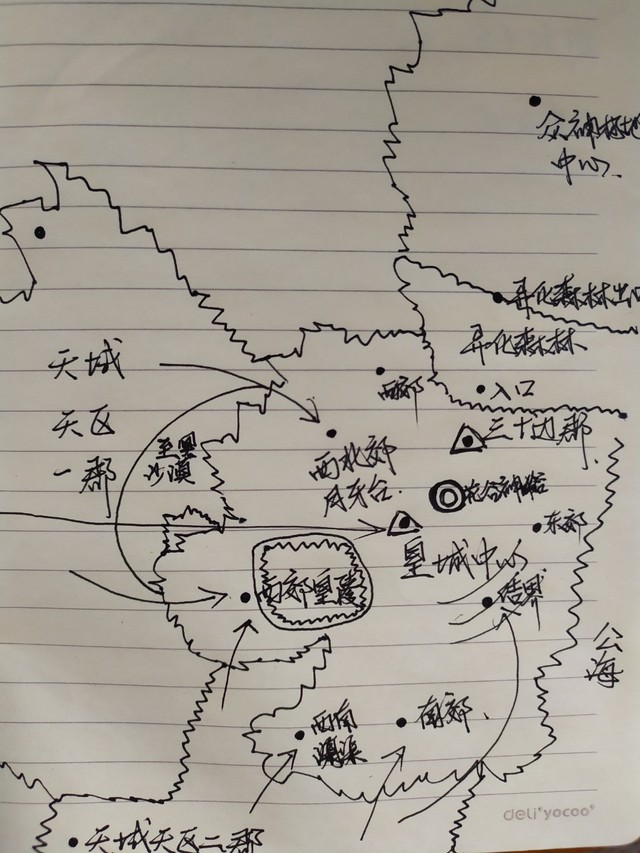 众神林地
中心.
异化森林出口
异化森林.
入口
天城
天区
一郡
西郊
三十边郡.
至皇
沙漠
西北郊
月牙台.
东郊
皇城中心
西郊皇陵
结界
公海
西南
南郊.
deli yocoo
天城天区二郡